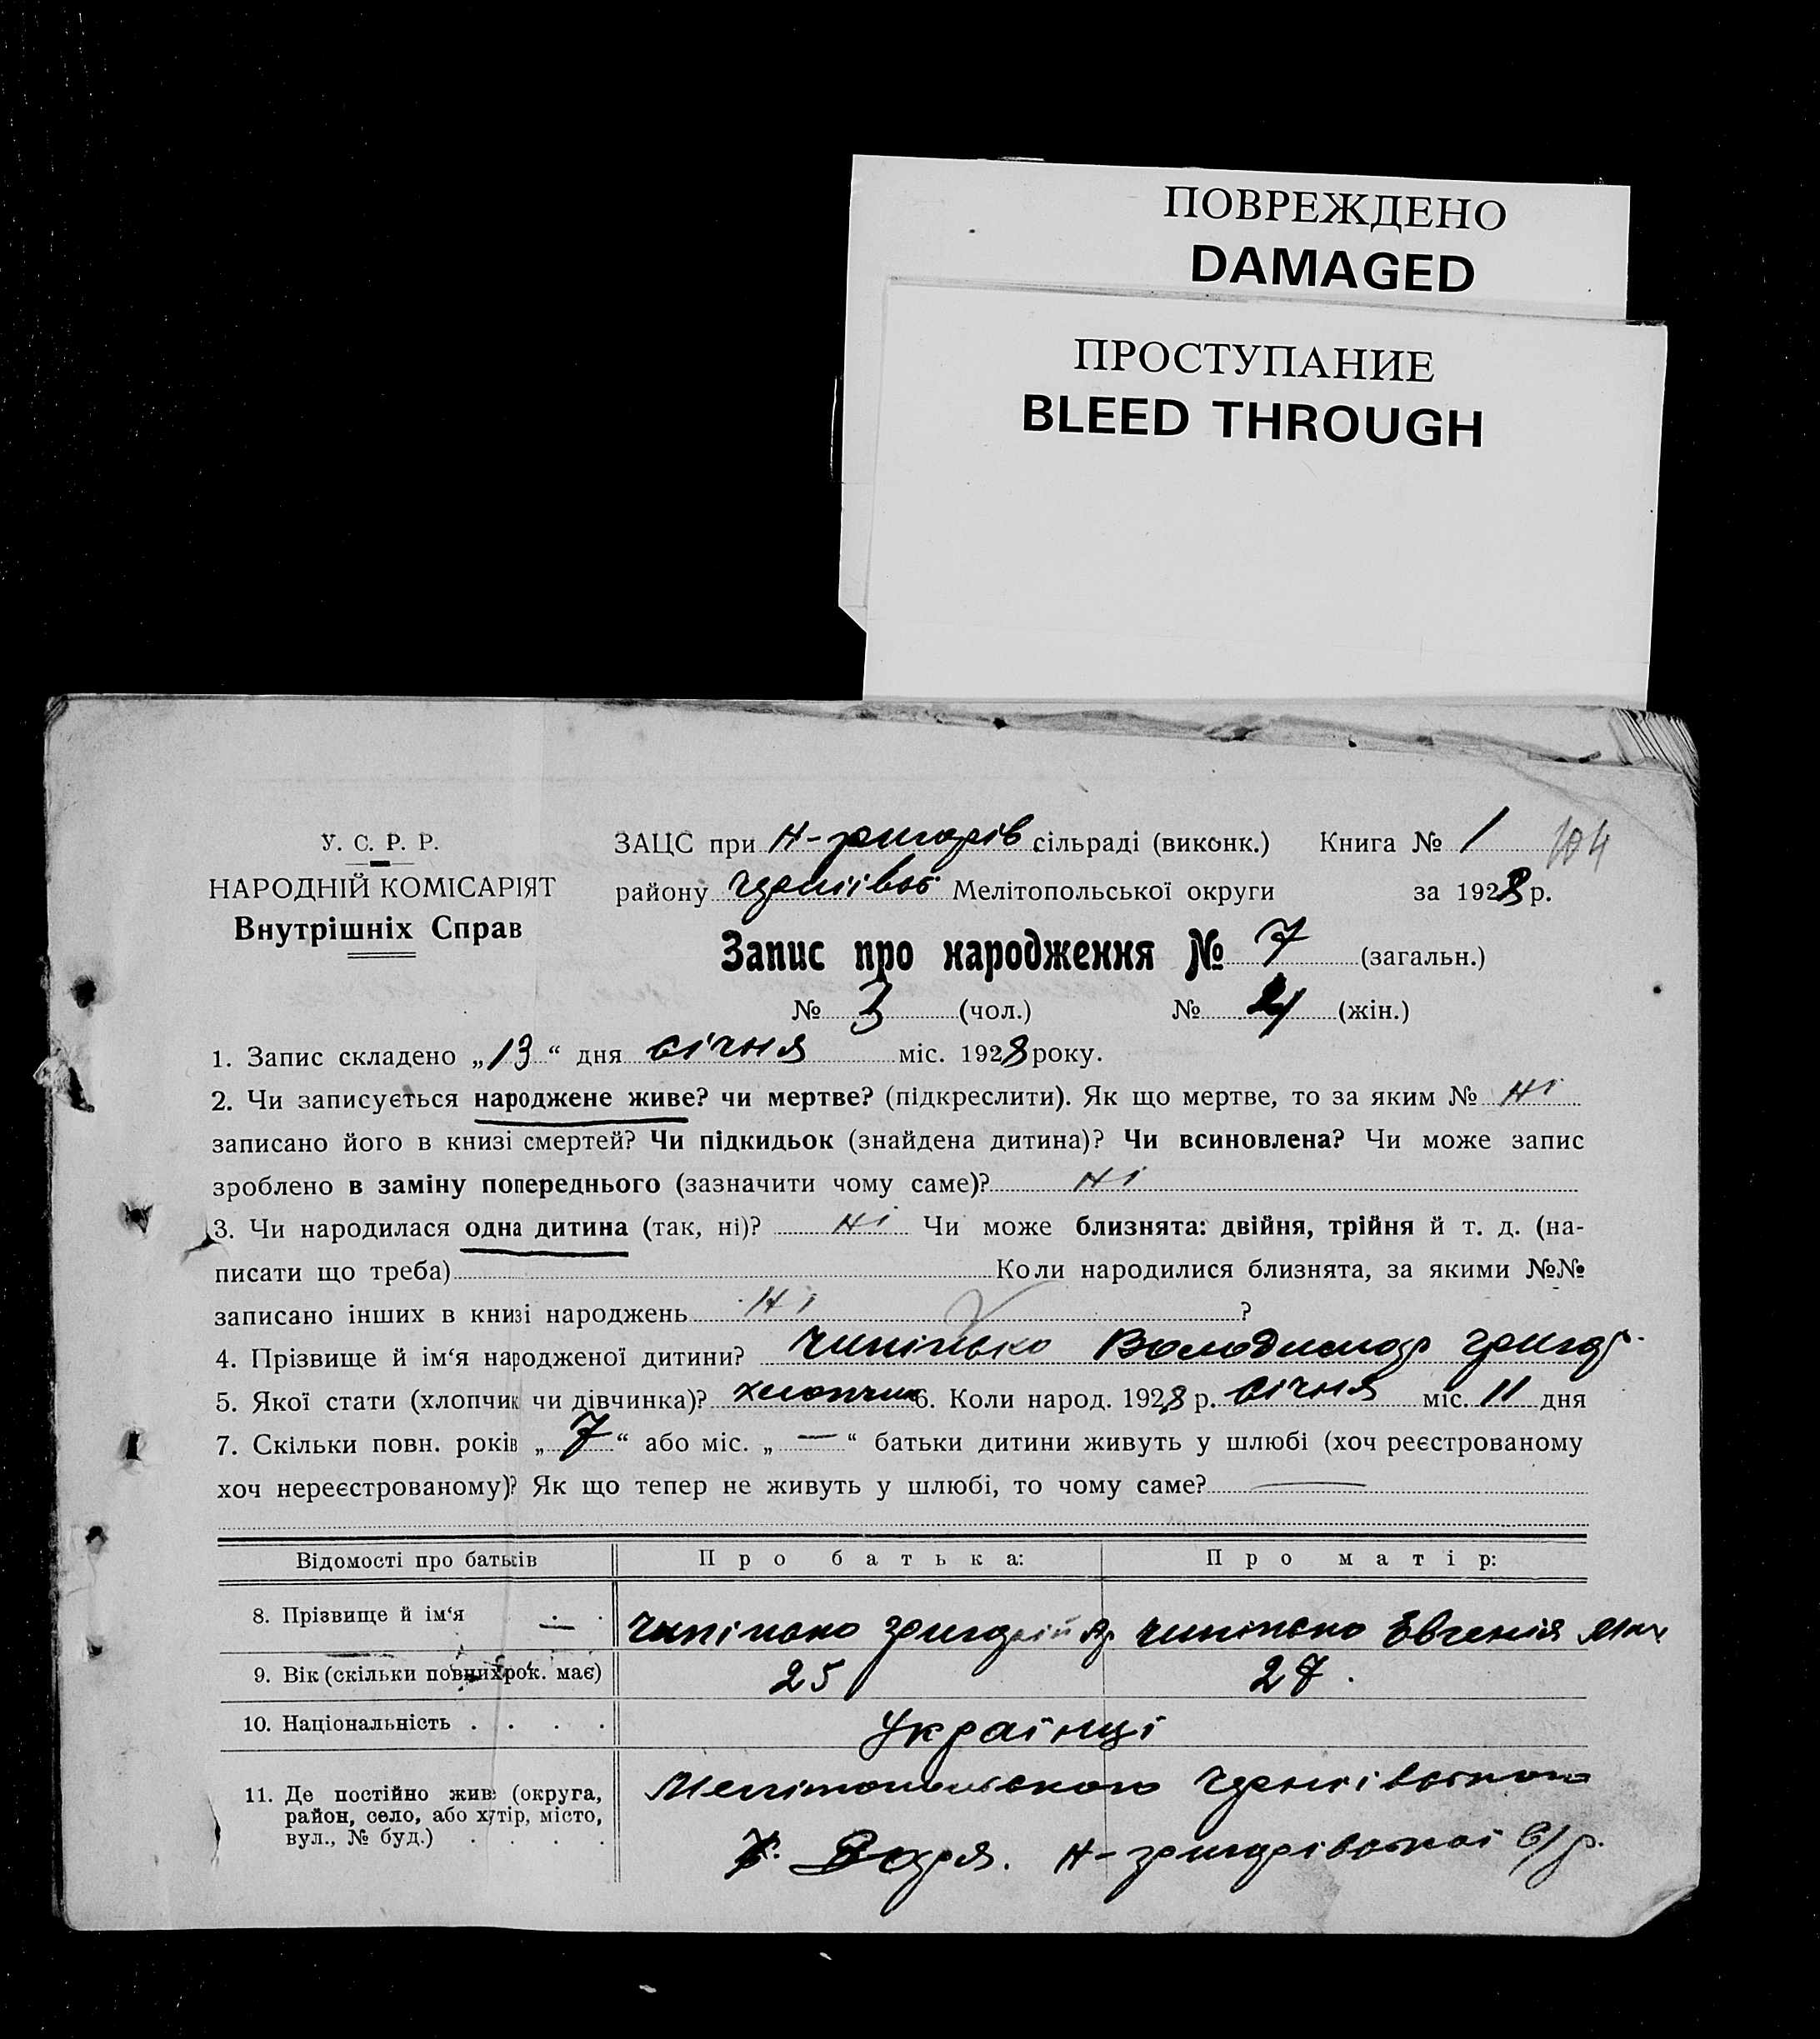 ПОВРЕЖДЕНО
DAMAGED
ПРОСТУПАНИЕ
BLEED THROUGH
У. С. Р. Р.
НАРОДНІЙ КОМІСАРІЯТ
Внутрішніх Справ
ЗАЦС при Н-григорів сільраді (виконк.) Книга № 1 104
району Мелітопольської округи за 1928 р.
Запис про народження № 7 (загальн.)
№ 3 (чол.) № 4 (жін.)
1. Запис складено „13“ дня січня міс. 1928 року.
2. Чи записується народжене живе? чи мертве? (підкреслити). Як що мертве, то за яким № ні
записано його в книзі смертей? Чи підкидьок (знайдена дитина)? Чи всиновлена? Чи може запис
зроблено в заміну попереднього (зазначити чому саме)? ні
3. Чи народилася одна дитина (так, ні)? ні Чи може близнята: двійня, трійня й т. д. (на-
писати що треба) Коли народилися близнята, за якими №№
записано інших в книзі народжень ні ?
4. Прізвище й ім‘я народженої дитини? Володимир Григор.
5. Якої стати (хлопчик чи дівчинка)? хлопчик 6. Коли народ. 1928 р. січня міс. 11 дня
7. Скільки повн. років „7“ або міс. „—“ батьки дитини живуть у шлюбі (хоч реєстрованому
хоч нереєстрованому)? Як що тепер не живуть у шлюбі, то чому саме? —
Відомості про батьків Про батька: Про матір:
8. Прізвище й ім‘я Григорій Евгенія Мих
9. Вік (скільки повних рок. має) 25 27.
10. Національність . . . . Українці
11. Де постійно живе (округа,
район, село, або хутір, місто,
вул., № буд.) . . . .
Мелітопольского
Н-григорівської с/р.